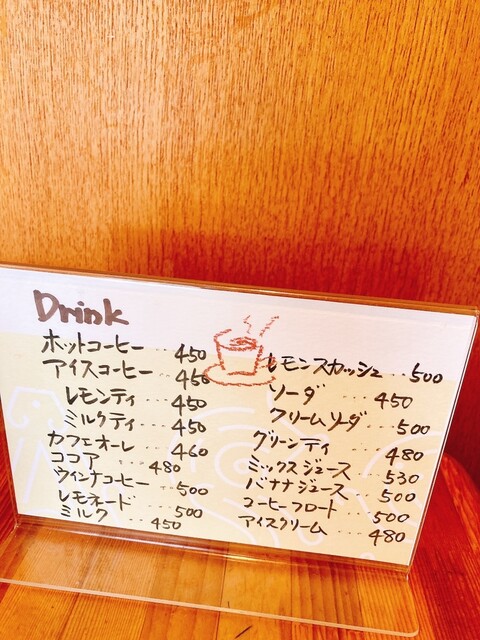 Drink
ホットコーヒー … 450
アイスコーヒー … 450
レモンティ … 450
ミルクティ … 450
カフェオーレ … 460
ココア … 480
ウィンナコーヒー … 500
レモネード … 500
ミルク … 450
レモンスカッシュ … 500
ソーダ … 450
クリームソーダ … 500
グリーンティ … 480
ミックスジュース … 530
バナナジュース … 500
コーヒーフロート … 500
アイスクリーム … 480